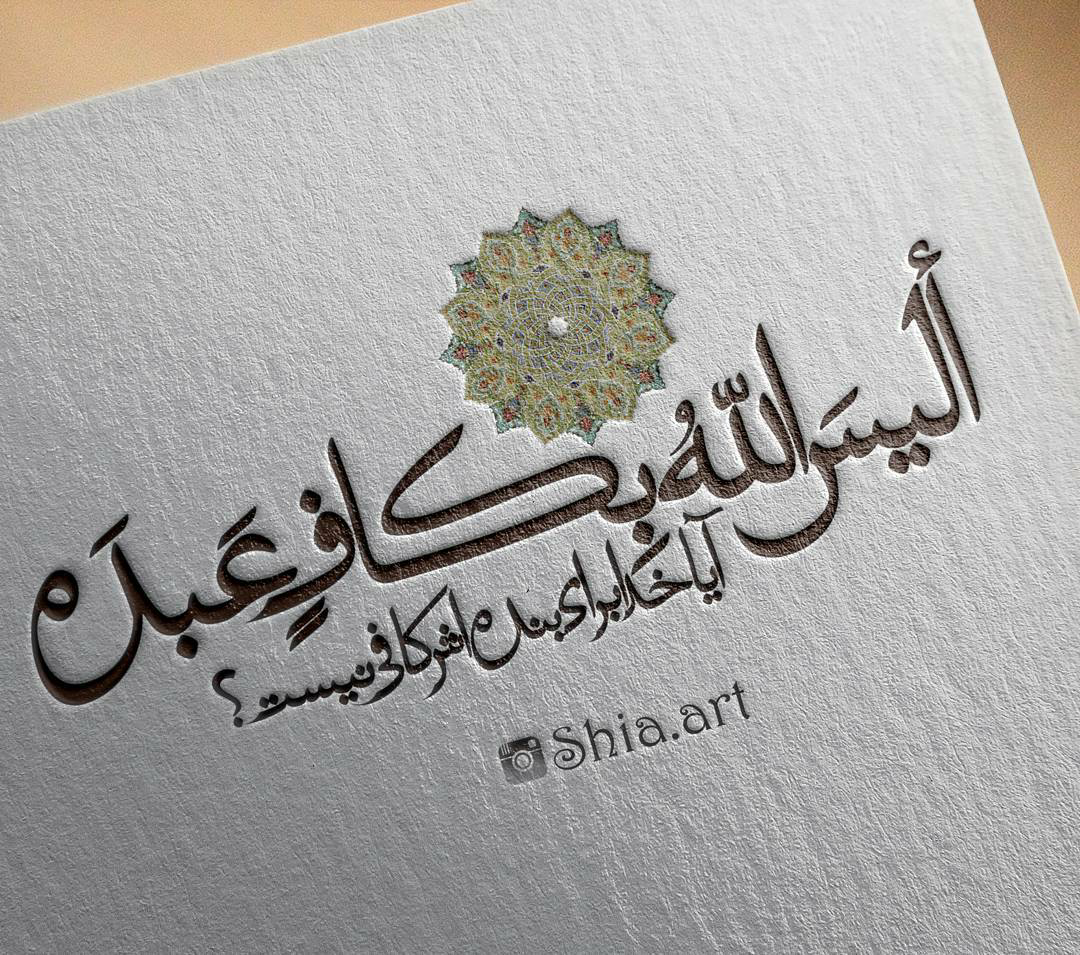 أليسَ اللّهُ بكافٍ عَبدَه
آیا خدا برای بنده اش کافی نیست؟
Shia.art